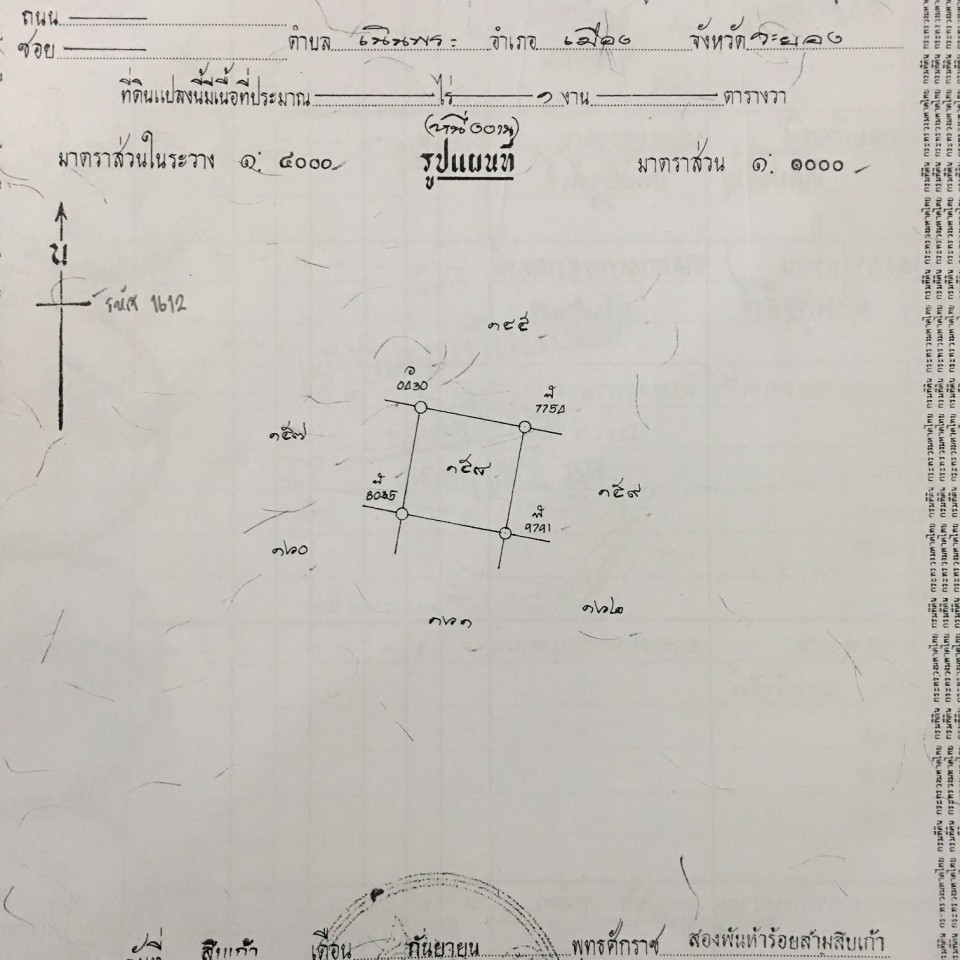 ถนน
ซอย ตำบล เนินพระ อำเภอ เมือง จังหวัด ระยอง
ที่ดินแปลงนี้มีเนื้อที่ประมาณ ไร่ ๑ งาน ตารางวา
(หนึ่งงาน)
มาตราส่วนในระวาง ๑: ๔๐๐๐ รูปแผนที่ มาตราส่วน ๑: ๑๐๐๐
น
รหัส 1612
๑๕๕
๐
0430
พ
7754
๑๕๗
๑๕๘
พ
8035
๑๕๙
พ
9791
๑๖๐
๑๖๒
๑๖๑
วันที่ สิบเก้า เดือน กันยายน พุทธศักราช สองพันห้าร้อยสามสิบเก้า